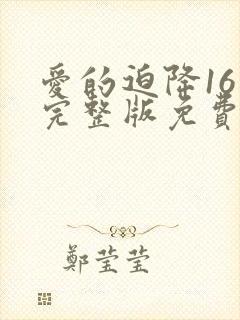 愛的迫降16
完整版免費
鄭莹莹